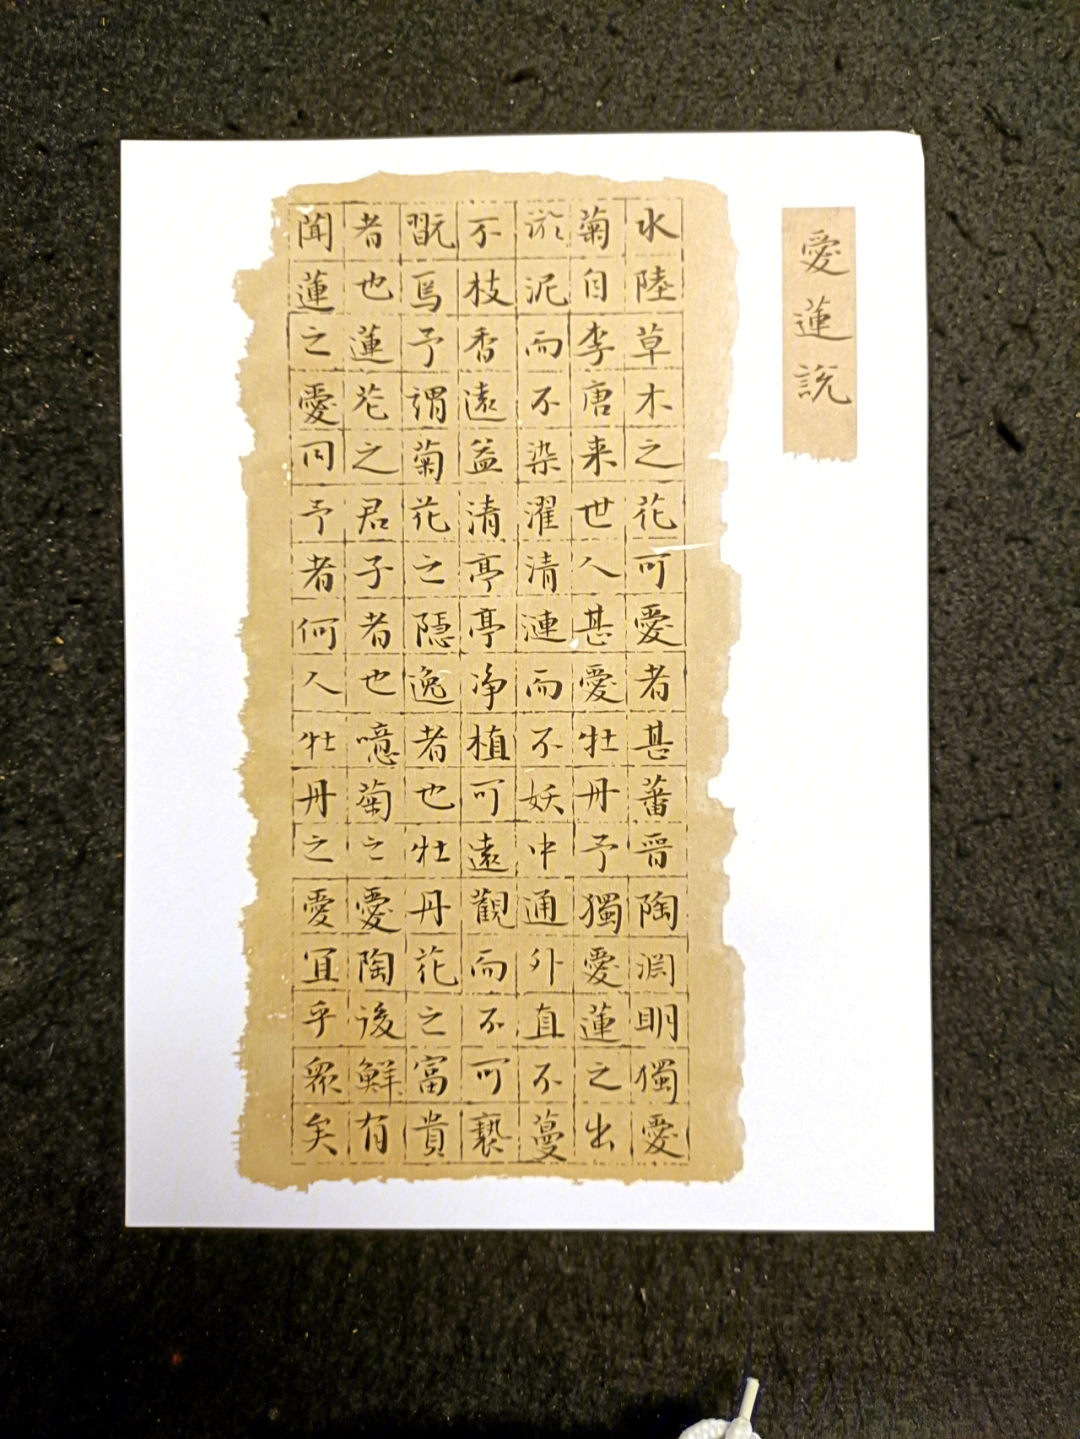 愛蓮說
水陸草木之花可愛者甚蕃晉陶淵明獨愛
菊自李唐来世人甚愛牡丹予獨愛蓮之出
淤泥而不染濯清漣而不妖中通外直不蔓
不枝香遠益清亭亭净植可遠觀而不可褻
翫焉予謂菊花之隱逸者也牡丹花之富貴
者也蓮花之君子者也噫菊之愛陶後鮮有
聞蓮之愛同予者何人牡丹之愛宜乎眾矣